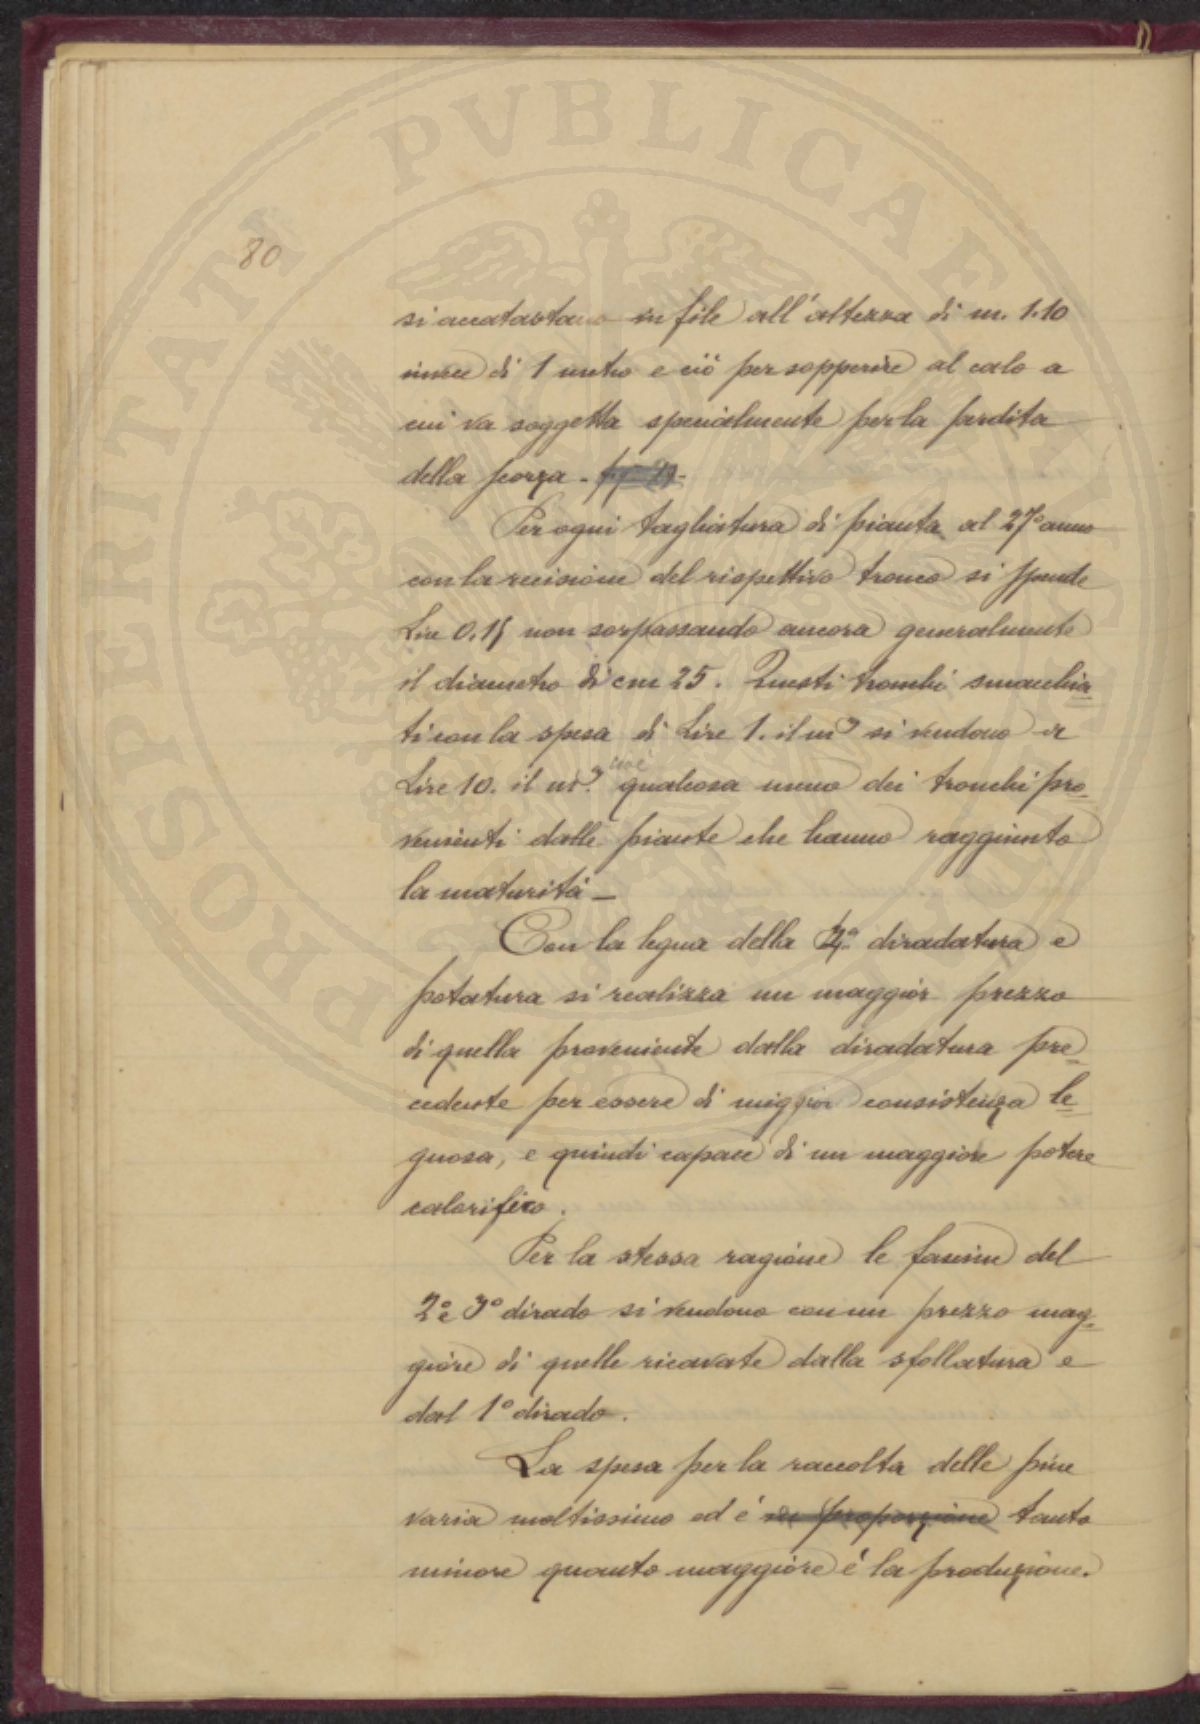 80
si accatastano in file all'altezza di m. 1.10
invece di 1 metro e ciò per sopperire al calo a
cui va soggetta specialmente per la perdita
della scorza -
Per ogni tagliatura di pianta al 27° anno
con la recisione del rispettivo tronco si spende
Lire 0.15 non sorpassando ancora generalmente
il diametro di cm 25. Questi tronchi smacchia
ti con la spesa di Lire 1. il m³ si vendono a
Lire 10. il m³. cioè qualcosa meno dei tronchi pro=
venienti dalle piante che hanno raggiunto
la maturità -
Con la legna della 2ª diradatura e
potatura si realizza un maggior prezzo
di quella proveniente dalla diradatura pre=
cedente per essere di miggior consistenza le=
gnosa, e quindi capace di un maggiore potere
calorifico.
Per la stessa ragione le fascine del
2° e 3° dirado si vendono con un prezzo mag=
giore di quelle ricavate dalla sfollatura e
dal 1° dirado.
La spesa per la raccolta delle pine
varia moltissimo ed è in proporzione tanto
minore quanto maggiore è la produzione.
PROSPERITATI PVBLICAE